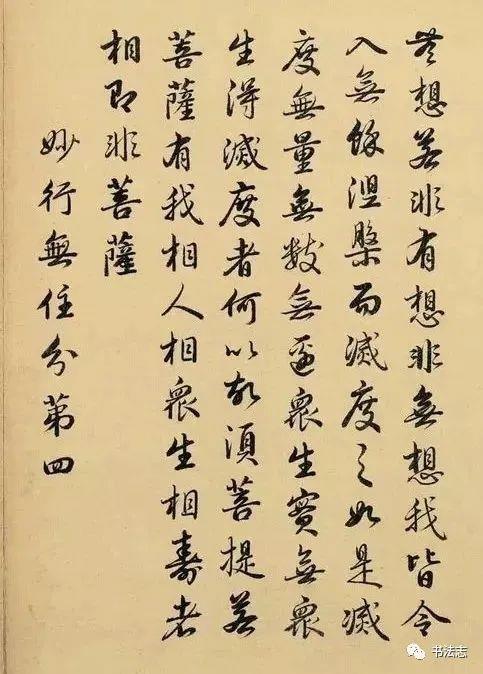 无想若非有想非無想我皆令
入無餘涅槃而滅度之如是滅
度無量無數無邊衆生實無衆
生得滅度者何以故須菩提若
菩薩有我相人相衆生相壽者
相即非菩薩
妙行無住分第四
书法志